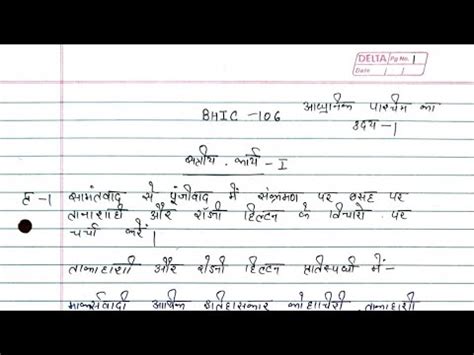 DELTA Pg No. 1
Date / /
BHIC - 106
आधुनिक पश्चिम का
उदय - I
सत्रीय कार्य - I
प्र-1 सामंतवाद से पूंजीवाद में संक्रमण पर बहस पर
तानाशाही और रॉडनी हिल्टन के विचारों पर
चर्चा करें।
ताकाहाशी और रोडनी हिल्टन
मार्क्सवादी आर्थिक इतिहासकार कोहाचीरो ताकाहाशी